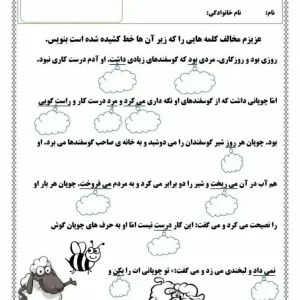 نام: نام خانوادگی:
عزیزم مخالف کلمه هایی را که زیر آن ها خط کشیده شده است بنویس.
روزی بود و روزگاری. مردی بود که گوسفندهای زیادی داشت. او آدم درست کاری نبود.
امّا چوپانی داشت که از گوسفندهای او نگه داری می کرد و مرد درست کار و راست گویی
بود. چوپان هر روز شیر گوسفندان را می دوشید و به خانه ی صاحب گوسفندها می برد. او
هم آب در آن می ریخت و شیر را دو برابر می کرد و به مردم می فروخت. چوپان هر بار او
را نصیحت می کرد و می گفت: این کار درست نیست امّا او به حرف های چوپان گوش
نمی داد و لبخندی می زد و می گفت: «تو چوپانی ات را بکن و